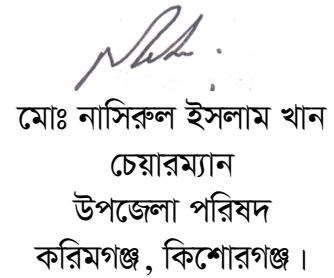 মোঃ নাসিরুল ইসলাম খান
চেয়ারম্যান
উপজেলা পরিষদ
করিমগঞ্জ, কিশোরগঞ্জ।